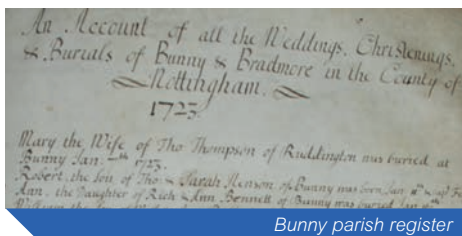 An Account of all the Weddings, Christenings,
& Burials of Bunny & Bradmore in the County of
Nottingham.
1723.
Mary the Wife of Tho Thompson of Ruddington was buried at
Bunny Jan. 1723.
Robert the Son of Tho: & Sarah Henson of Bunny was born Jan
Ann, the Daughter of Rich & Ann Bennett of Bunny was buried Jan
Bunny parish register